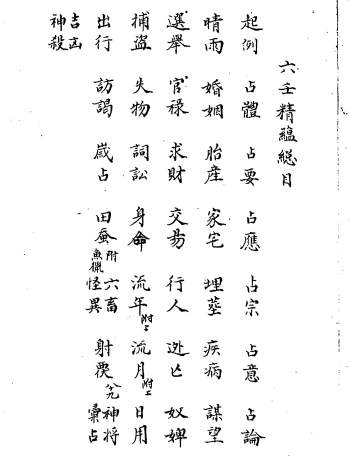 六壬精蘊總目
起例 占體 占要 占應 占宗 占意 占論
晴雨 婚姻 胎產 家宅 埋塟 疾病 謀望
選舉 官祿 求財 交易 行人 逃亡 奴婢
捕盜 失物 詞訟 身命 流年附二 流月附二 日用
出行 訪謁 歲占 田蠶附漁獵 六畜怪異 射覆 八九神將彙占
吉凶神殺